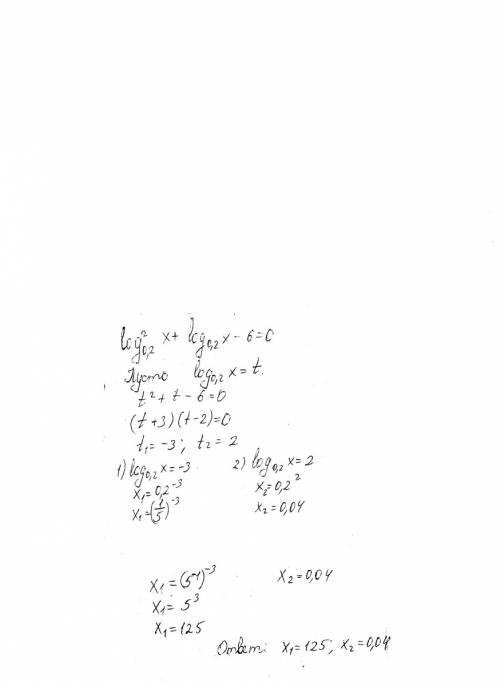 log²₀,₂ x + log₀,₂ x - 6 = 0
Пусть log₀,₂ x = t.
t² + t - 6 = 0
(t+3)(t-2)=0
t₁ = -3; t₂ = 2
1) log₀,₂ x = -3 2) log₀,₂ x = 2
x₁ = 0,2⁻³ x₂ = 0,2²
x₁ = (1/5)⁻³ x₂ = 0,04
x₁ = (5⁻¹)⁻³ x₂ = 0,04
x₁ = 5³
x₁ = 125
Ответ: x₁ = 125; x₂ = 0,04